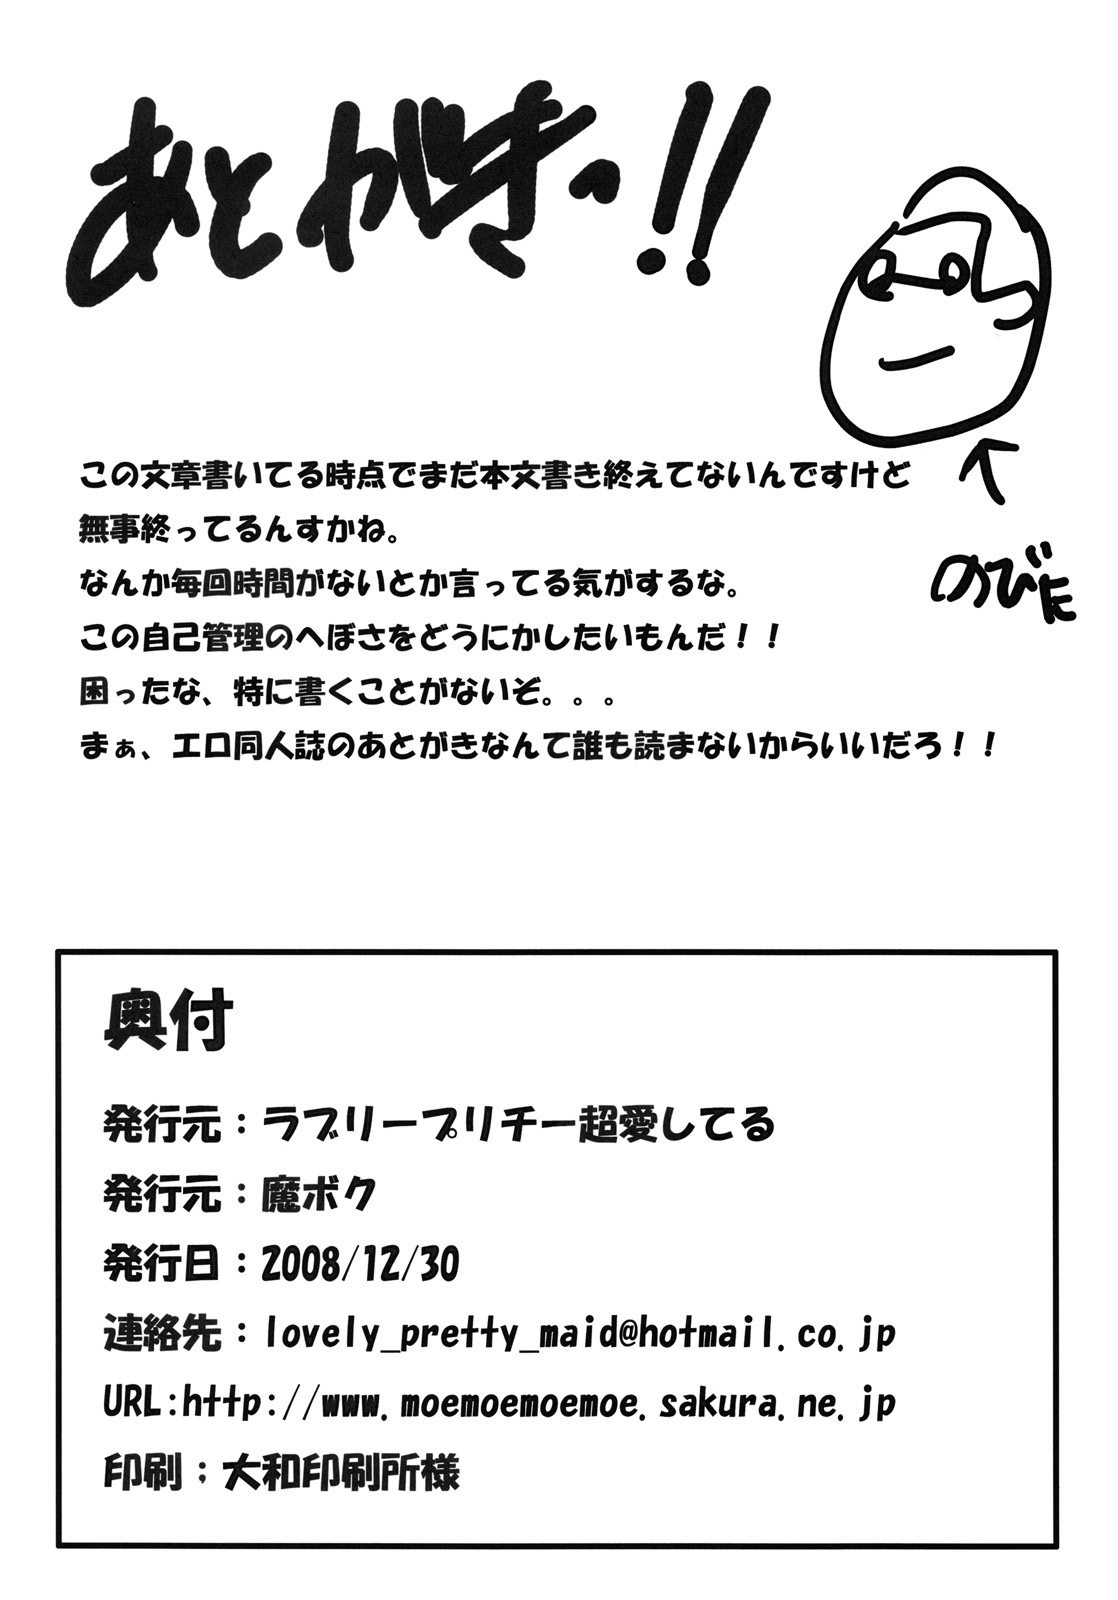 あとがきっ!!
この文章書いてる時点でまだ本文書き終えてないんですけど
無事終ってるんすかね。
なんか毎回時間がないとか言ってる気がするな。
この自己管理のへぼさをどうにかしたいもんだ！！
困ったな、特に書くことがないぞ。。。
まぁ、エロ同人誌のあとがきなんて誰も読まないからいいだろ！！
のびた
奥付
発行元：ラブリープリチー超愛してる
発行元：魔ボク
発行日：2008/12/30
連絡先：lovely_pretty_maid@hotmail.co.jp
URL:http://www.moemoemoemoe.sakura.ne.jp
印刷；大和印刷所様